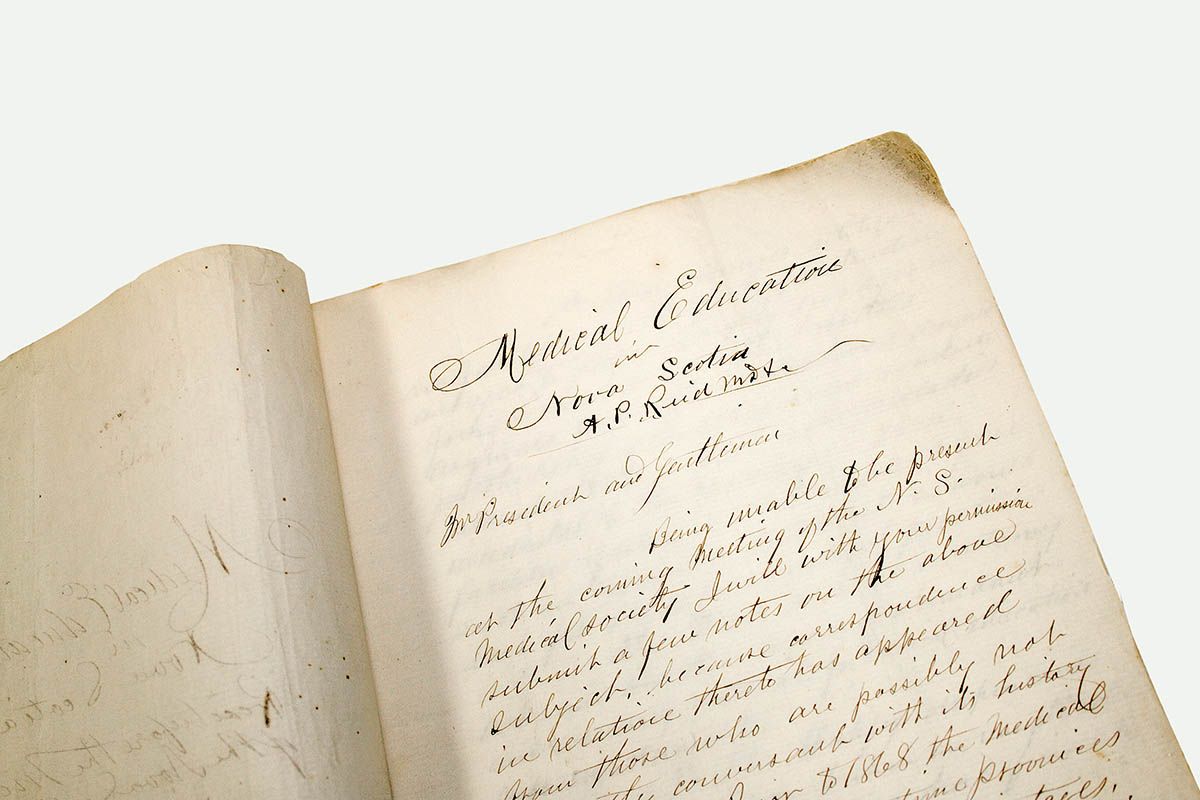 Medical Education
in
Nova Scotia
A. P. Reid MD &c.
Mr President and Gentlemen
Being unable to be present
at the coming Meeting of the N. S.
Medical society I will with your permission
submit a few notes on the above
subject, because correspondence
in relation thereto has appeared
from those who are possibly not
conversant with its history
to 1868 the Medical
provinces